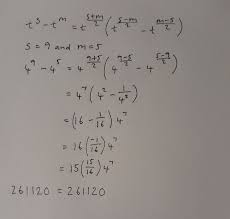 t^s - t^m = t^((s+m)/2) (t^((s-m)/2) - t^((m-s)/2))
s = 9 and m = 5
4^9 - 4^5 = 4^((9+5)/2) (4^((9-5)/2) - 4^((5-9)/2))
= 4^7 (4^2 - 1/4^2)
= (16 - 1/16) 4^7
= 16 (-1/16) 4^7
= 15 (15/16) 4^7
261120 = 261120